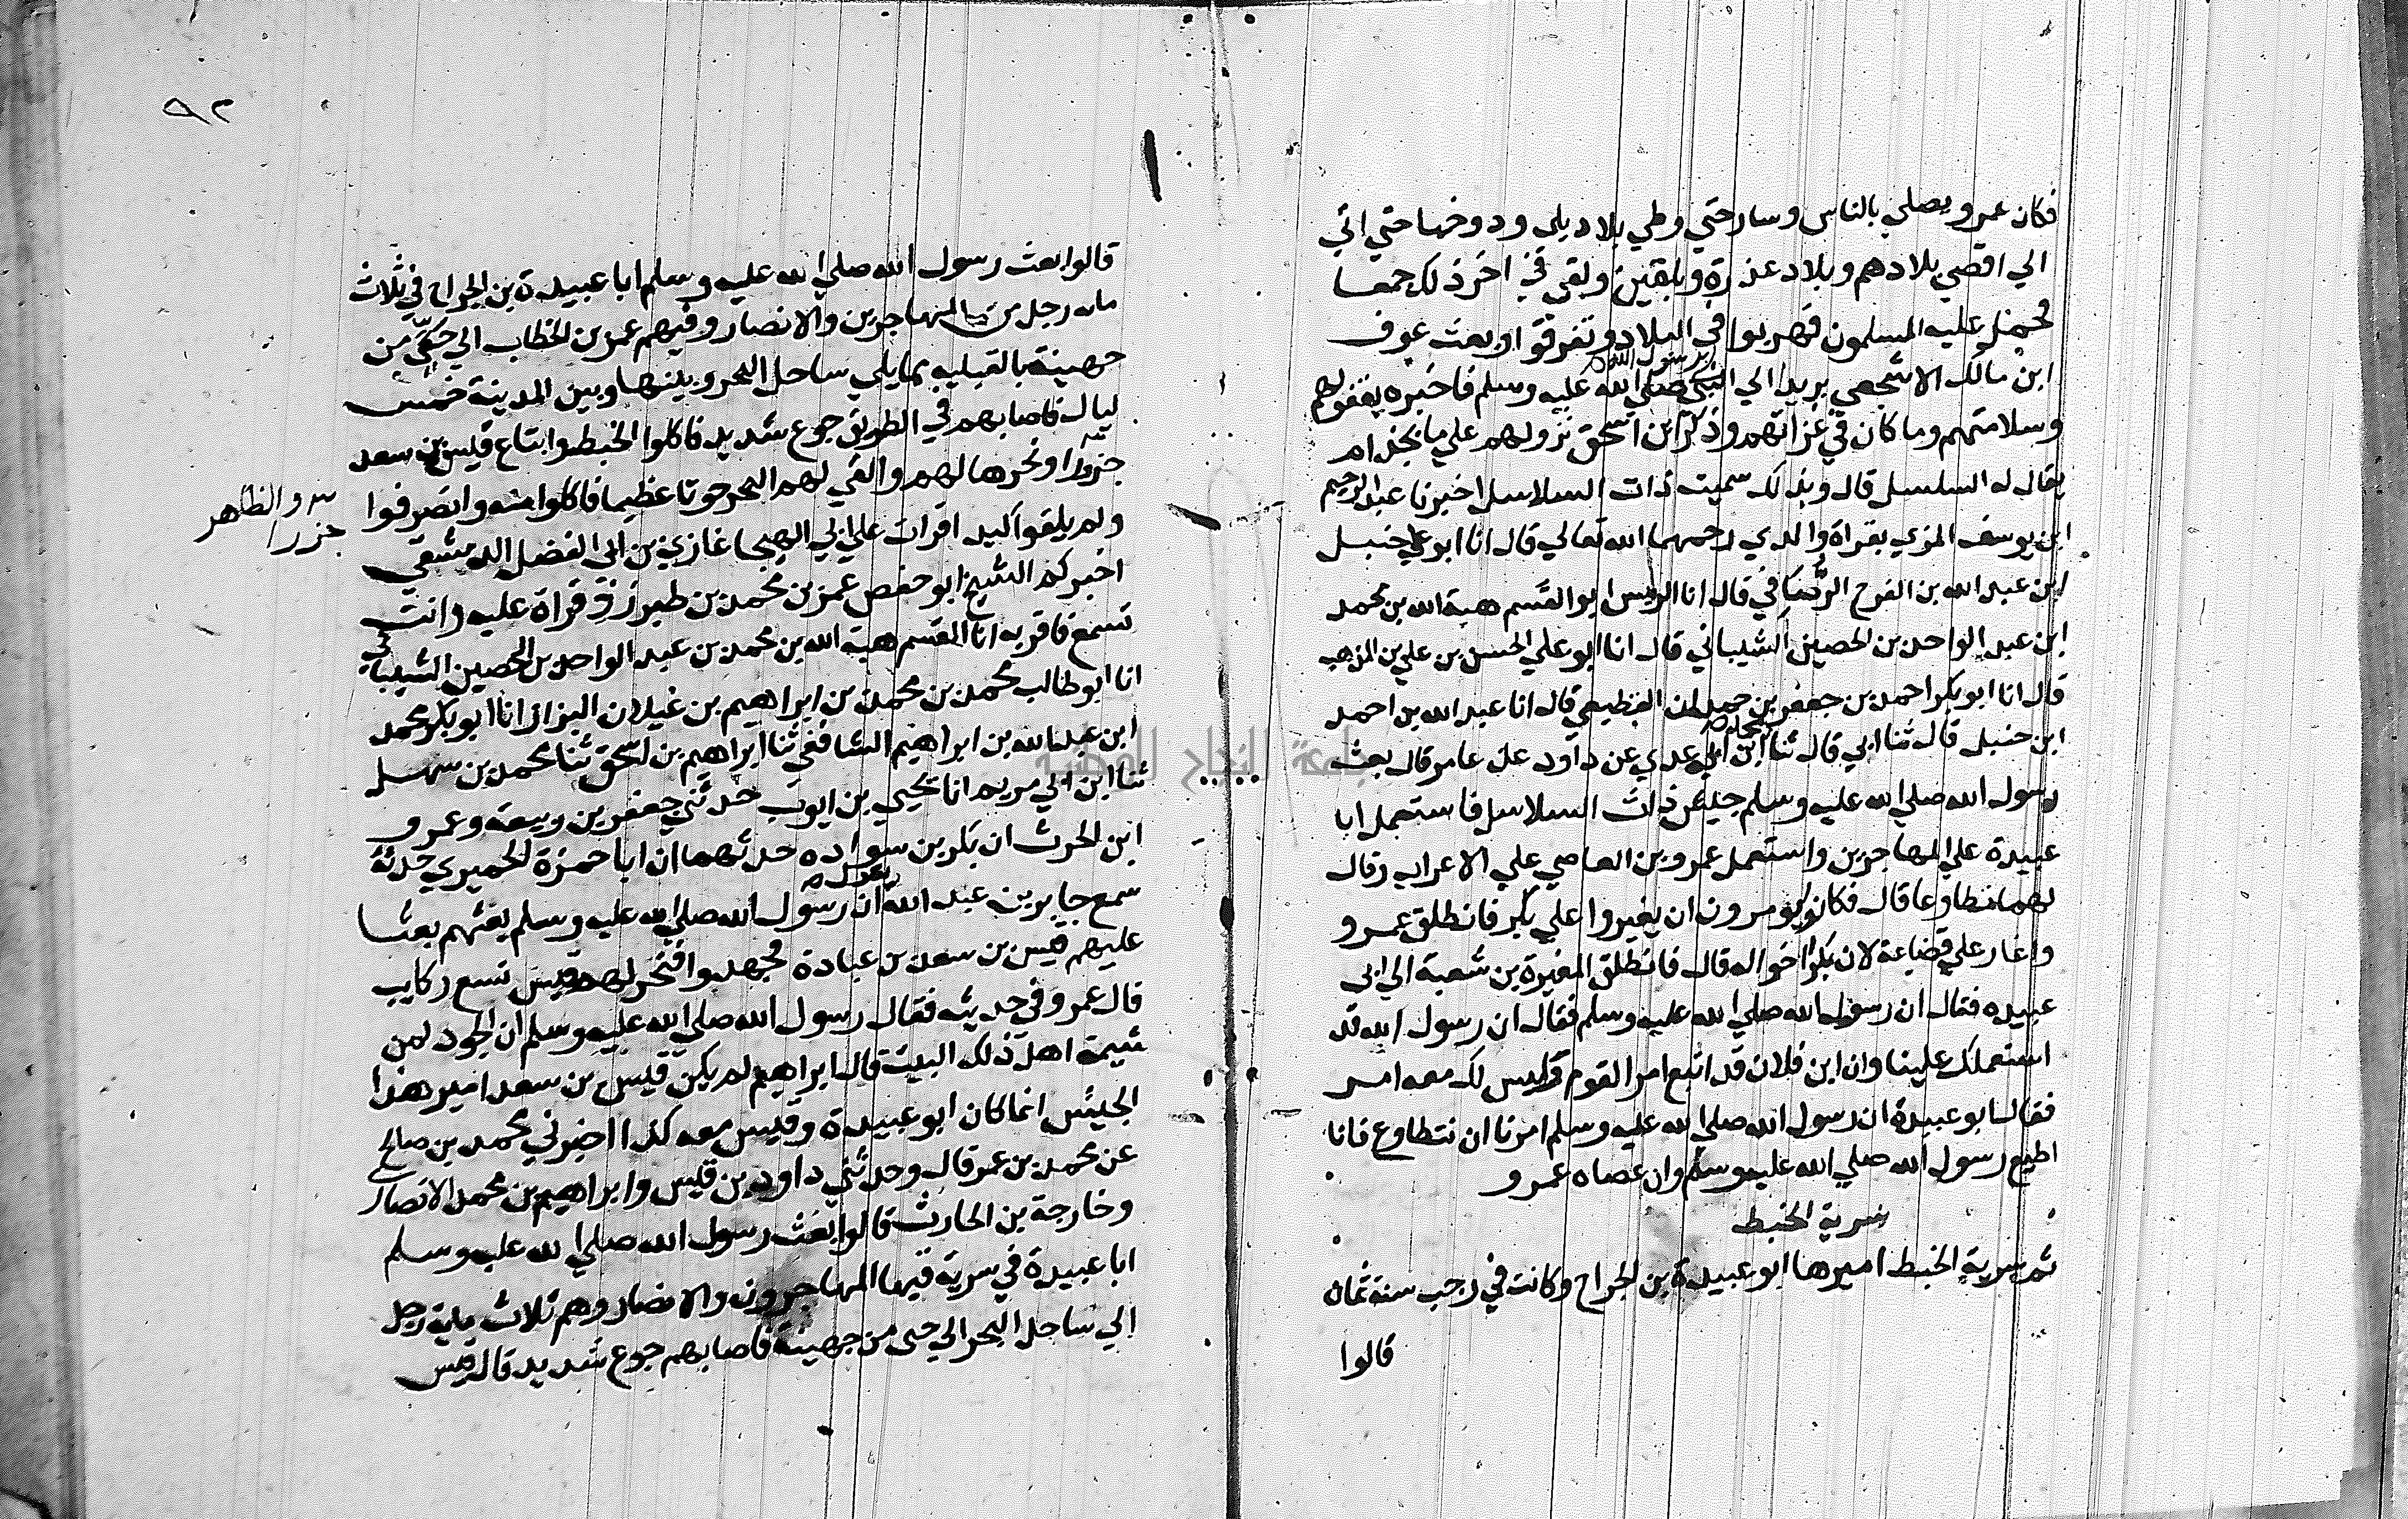 فكان عمرو يصلي بالناس وسار حتي وطي بلاد بلي ودوخها حتي اتي
الي اقصي بلادهم وبلاد عذرة وبلقين ولقي في اخر ذلك جمعا
فحمل عليه المسلمون فهربوا في البلاد وتفرقوا وبعث عوف
ابن مالك الاشجعي بريدا الي النبي صلي الله عليه وسلم فاخبره بقفولهم
رسول الله
وسلامتهم وما كان في غزاتهم وذكر ابن اسحق نزولهم علي ما بجذام
يقال له السلسل قال وبذلك سميت ذات السلاسل اخبرنا عبد الرحيم
ابن يوسف المزي بقراة والدي رحمهما الله تعالي قال انا ابو علي حنبل
ابن عبد الله بن الفرج الرصافي قال انا الريس ابو القسم هبة الله بن محمد
ابن عبد الواحد بن الحصين الشيباني قال انا ابو علي الحسن بن علي بن المذهب
قال انا ابو بكر احمد بن جعفر بن حمدان القطيعي قال انا عبد الله بن احمد
ابن حنبل قال ثنا ابي قال ثنا ابن ابي عدي عن داود عن عامر قال بعث
رسول الله صلي الله عليه وسلم جيش ذات السلاسل فاستعمل ابا
عبيدة علي المهاجرين واستعمل عمرو بن العاصي علي الاعراب وقال
لهما تطاوعا قال فكانوا يومرون ان يغيروا علي بكر فانطلق عمرو
واغار علي قضاعة لان بكرا اخواله قال فانطلق المغيرة بن شعبة الي ابي
عبيده فقال ان رسول الله صلي الله عليه وسلم فقال ان رسول الله قد
استعملك علينا وان ابن فلان قد اتبع امر القوم فليس لك معه امر
فقال ابو عبيدة ان رسول الله صلي الله عليه وسلم امرنا ان نتطاوع فانا
اطيع رسول الله صلي الله عليه وسلم وان عصاه عمرو
سرية الخبط
ثم سرية الخبط اميرها ابو عبيدة بن الجراح وكانت في رجب سنة ثمان
قالوا
٩٢
قالوا بعث رسول الله صلي الله عليه وسلم ابا عبيدة بن الجراح في ثلاث
ماه رجل من المهاجرين والانصار وفيهم عمر بن الخطاب الي حي من
جهينة بالقبليه مما يلي ساحل البحر وبينها وبين المدينة خمس
ليال فاصابهم في الطريق جوع شديد فاكلوا الخبط وابتاع قيس بن سعد
جزورا ونحرها لهم والقي لهم البحر حوتا عظيما فاكلوا منه وانصرفوا
والظاهر
جزرا
ولم يلقوا كيدا قرات علي ابي الهيجا غازي بن ابي الفضل الدمشقي
اخبركم الشيخ ابو حفص عمر بن محمد بن طبرزذ قراة عليه وانت
تسمع فاقر به انا القسم هبة الله بن محمد بن عبد الواحد بن الحصين الشيباني
انا ابو طالب محمد بن محمد بن ابراهيم بن غيلان البزار انا ابو بكر محمد
ابن عبد الله بن ابراهيم الشافعي ثنا ابراهيم بن اسحق ثنا محمد بن سهل
ثنا ابن ابي مريم انا يحيي بن ايوب حدثني جعفر بن ربيعة وعمرو
ابن الحرث ان بكر بن سواده حدثهما ان ابا حمزة الحميري حدثه
سمع جابر بن عبد الله ان رسول الله صلي الله عليه وسلم بعثهم بعثا
عليهم قيس بن سعد بن عبادة فجهدوا فنحر لهم قيس تسع ركايب
قال عمرو في حديثه فقال رسول الله صلي الله عليه وسلم ان الجود لمن
شيمة اهل ذلك البيت قال ابراهيم لم يكن قيس بن سعد امير هذا
الجيش انما كان ابو عبيدة وقيس معه كذا اخبرني محمد بن صالح
عن محمد بن عمر قال وحدثني داود بن قيس وابراهيم بن محمد الانصار
وخارجة بن الحارث قالوا بعث رسول الله صلي الله عليه وسلم
ابا عبيدة في سرية فيها المهاجرون والانصار وهم ثلاث ماية رجل
الي ساحل البحر الي حي من جهينة فاصابهم جوع شديد قال قيس
جامعة النجاح الوطنية